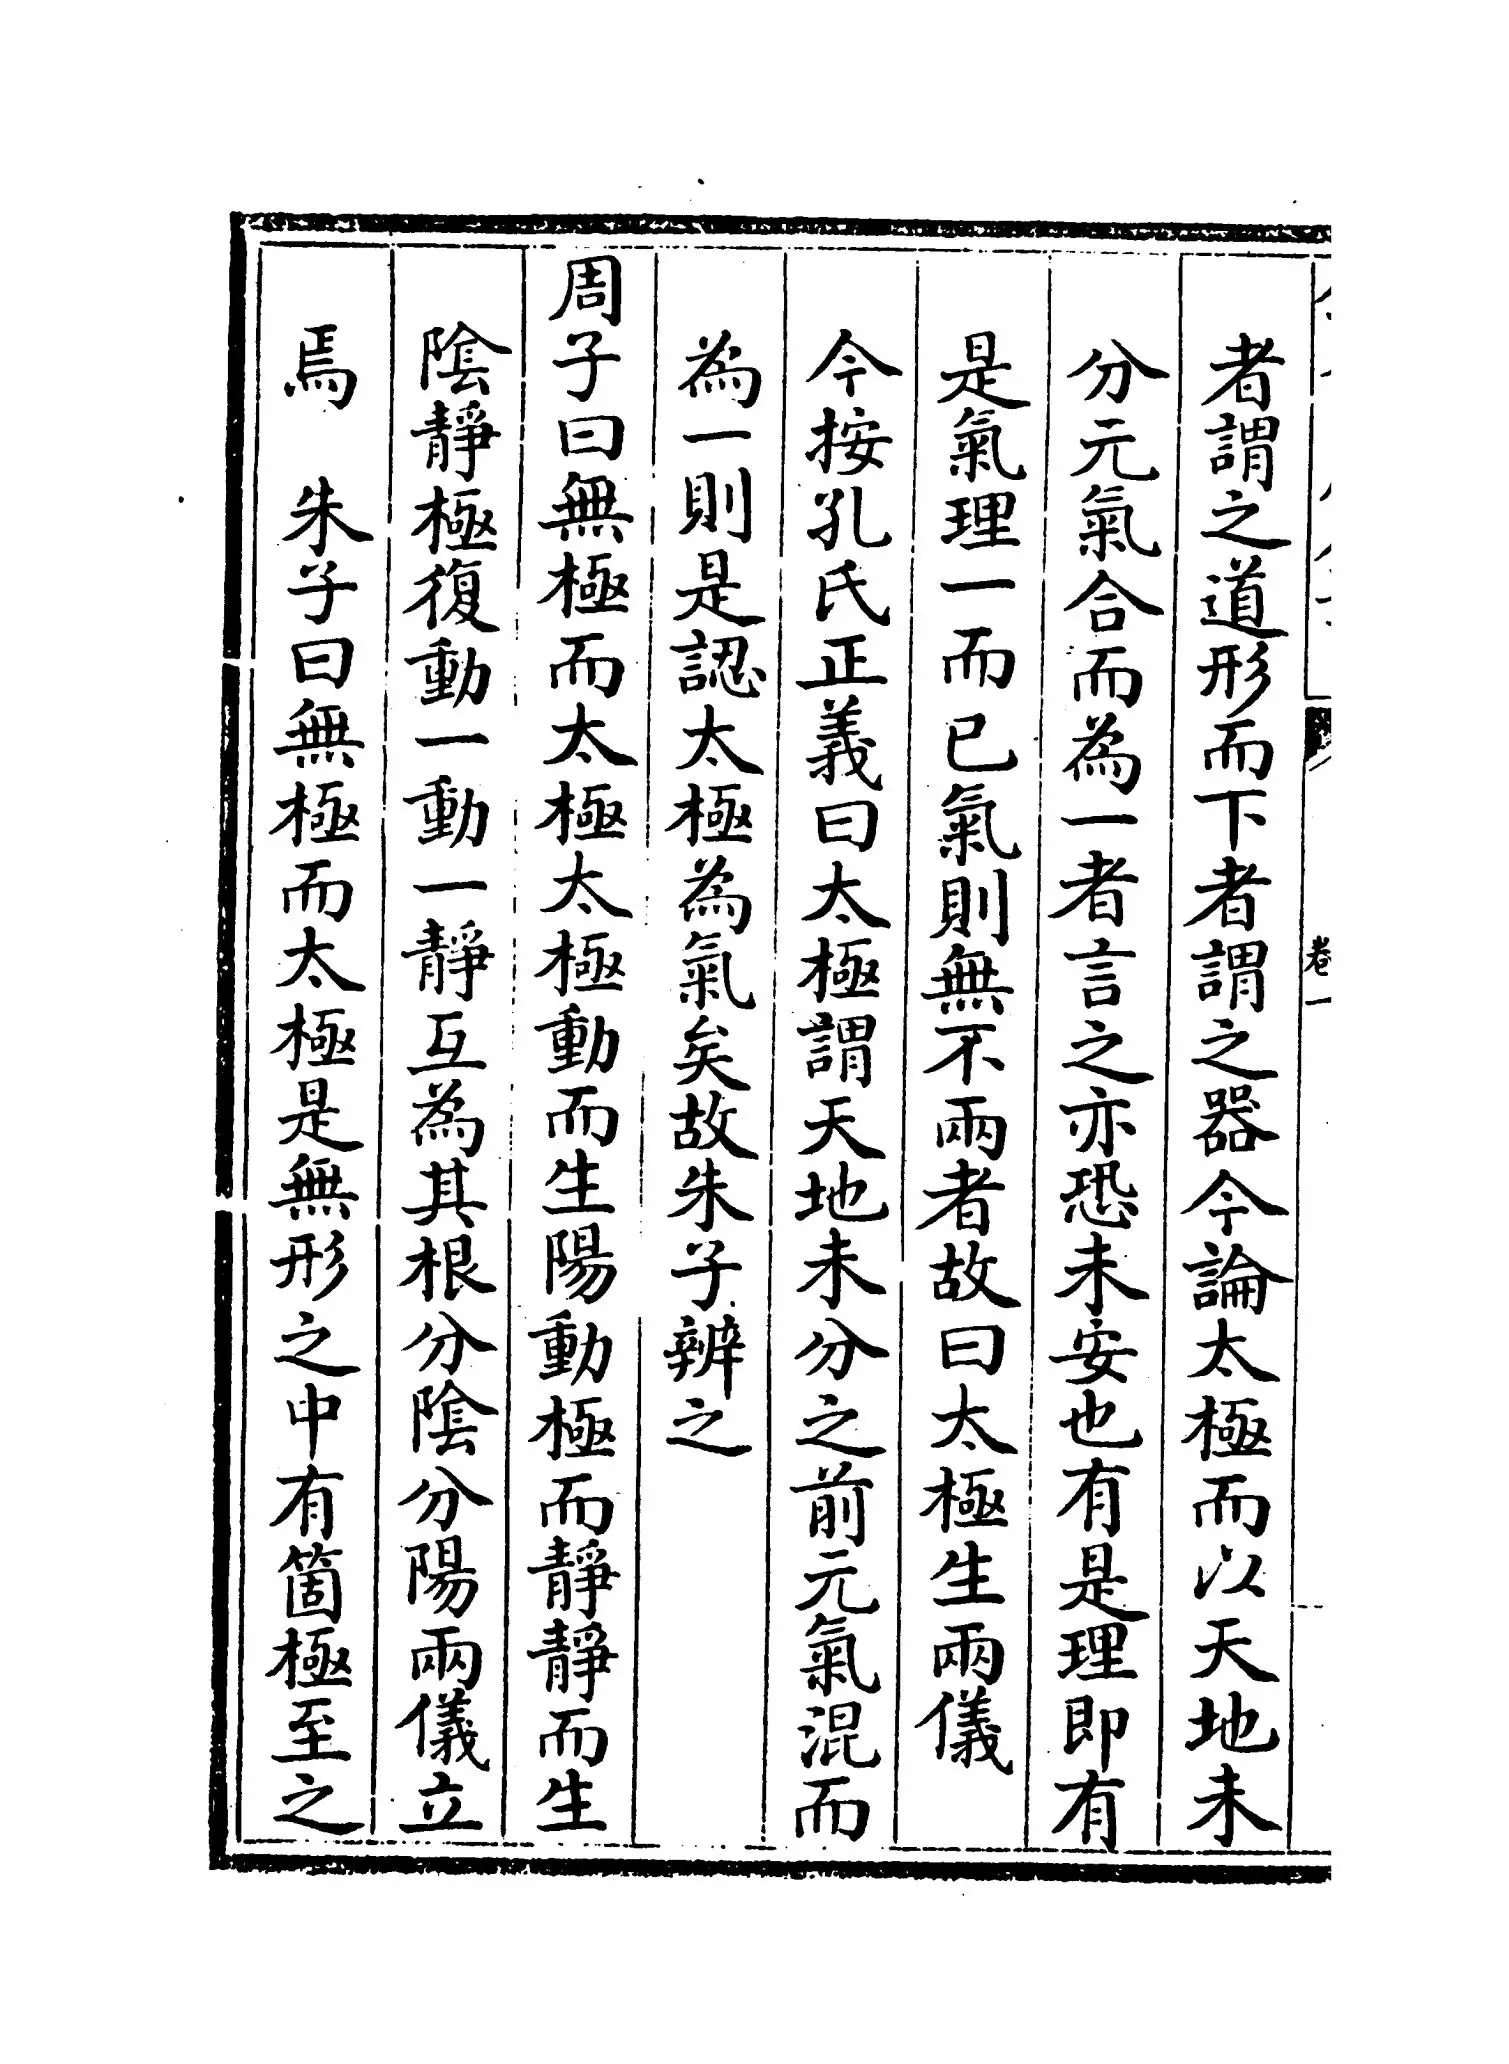 者謂之道形而下者謂之器今論太極而以天地未
分元氣合而為一者言之亦恐未安也有是理即有
是氣理一而已氣則無不兩者故曰太極生兩儀
今按孔氏正義曰太極謂天地未分之前元氣混而
為一則是認太極為氣矣故朱子辨之
周子曰無極而太極太極動而生陽動極而靜靜而生
陰靜極復動一動一靜互為其根分陰分陽兩儀立
焉　朱子曰無極而太極是無形之中有箇極至之
卷一